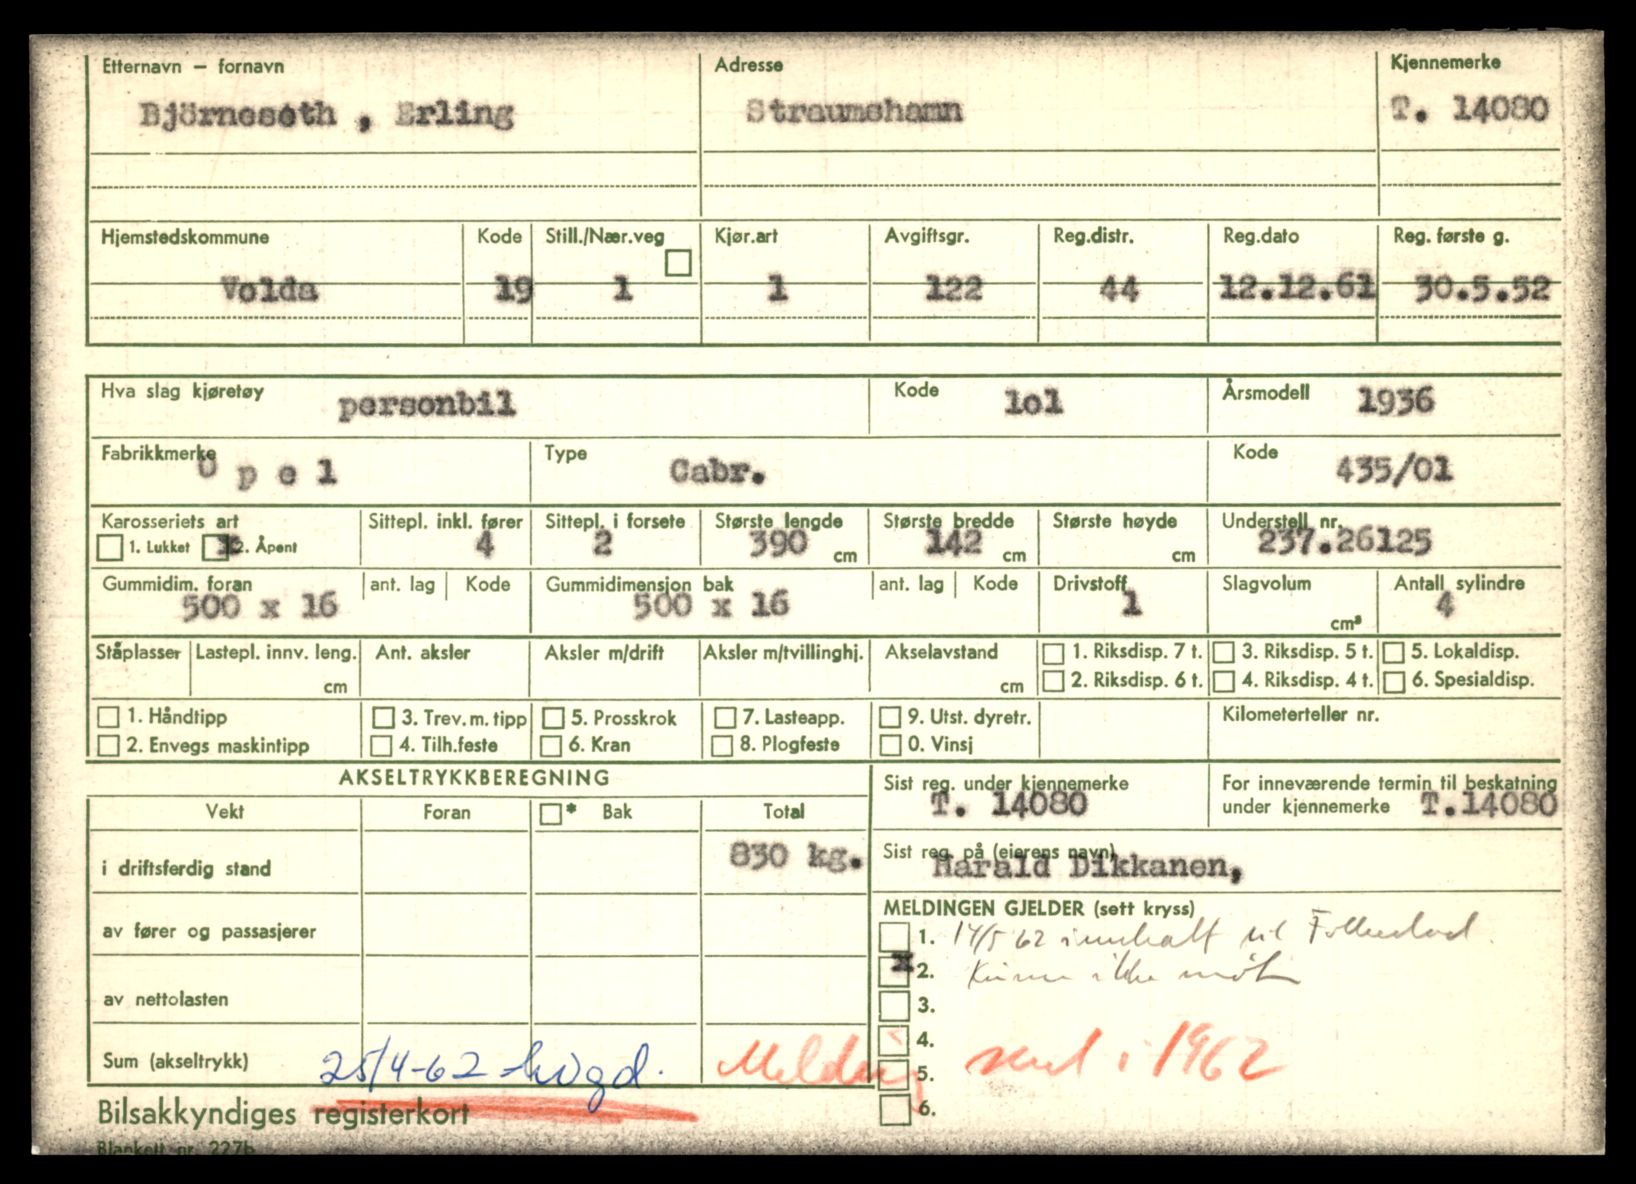 Etternavn – fornavn Adresse Kjennemerke
Björneseth , Erling Straumshamn T. 14080
Hjemstedskommune Kode Still./Nær.veg Kjør.art Avgiftsgr. Reg.distr. Reg.dato Reg. første g.
Volda 19 1 1 122 44 12.12.61 30.5.52
Hva slag kjøretøy personbil Kode 1o1 Årsmodell 1936
Fabrikkmerke Opel Type Cabr. Kode 435/01
Karosseriets art Sittepl. inkl. fører Sittepl. i forsete Største lengde Største bredde Største høyde Understell nr.
1. Lukket 2. Åpent 4 2 390 cm 142 cm cm 237.26125
Gummidim. foran ant. lag Kode Gummidimensjon bak ant. lag Kode Drivstoff Slagvolum Antall sylindre
500 x 16 500 x 16 1 cm³ 4
Ståplasser Lastepl. innv. leng. Ant. aksler Aksler m/drift Aksler m/tvillinghj. Akselavstand 1. Riksdisp. 7 t. 3. Riksdisp. 5 t. 5. Lokaldisp.
cm cm 2. Riksdisp. 6 t. 4. Riksdisp. 4 t. 6. Spesialdisp.
1. Håndtipp 3. Trev. m. tipp 5. Prosskrok 7. Lasteapp. 9. Utst. dyretr. Kilometerteller nr.
2. Envegs maskintipp 4. Tilh.feste 6. Kran 8. Plogfeste 0. Vinsj
AKSELTRYKKBEREGNING
Vekt Foran * Bak Total
i driftsferdig stand 830 kg.
av fører og passasjerer
av nettolasten
Sum (akseltrykk) 25/4-62
Sist reg. under kjennemerke T. 14080
For inneværende termin til beskatning
under kjennemerke T.14080
Sist reg. på (eierens navn)
Harald Dikkanen,
MELDINGEN GJELDER (sett kryss)
1. 14/5 62 innkalt til Folkestad.
x 2. Kunne ikke møte
3.
4.
5.
6.
Melding i 1962
Bilsakkyndiges registerkort
Blankett nr. 227b